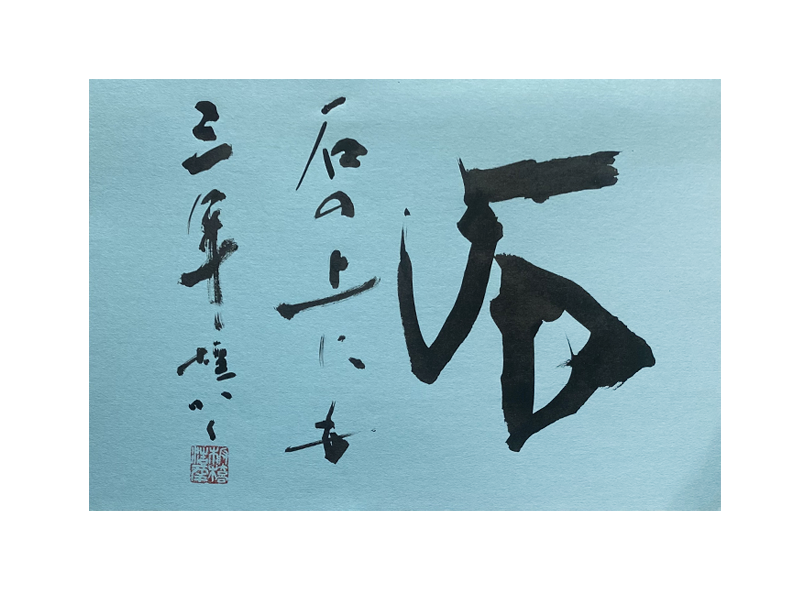 石
石の上にも
三年